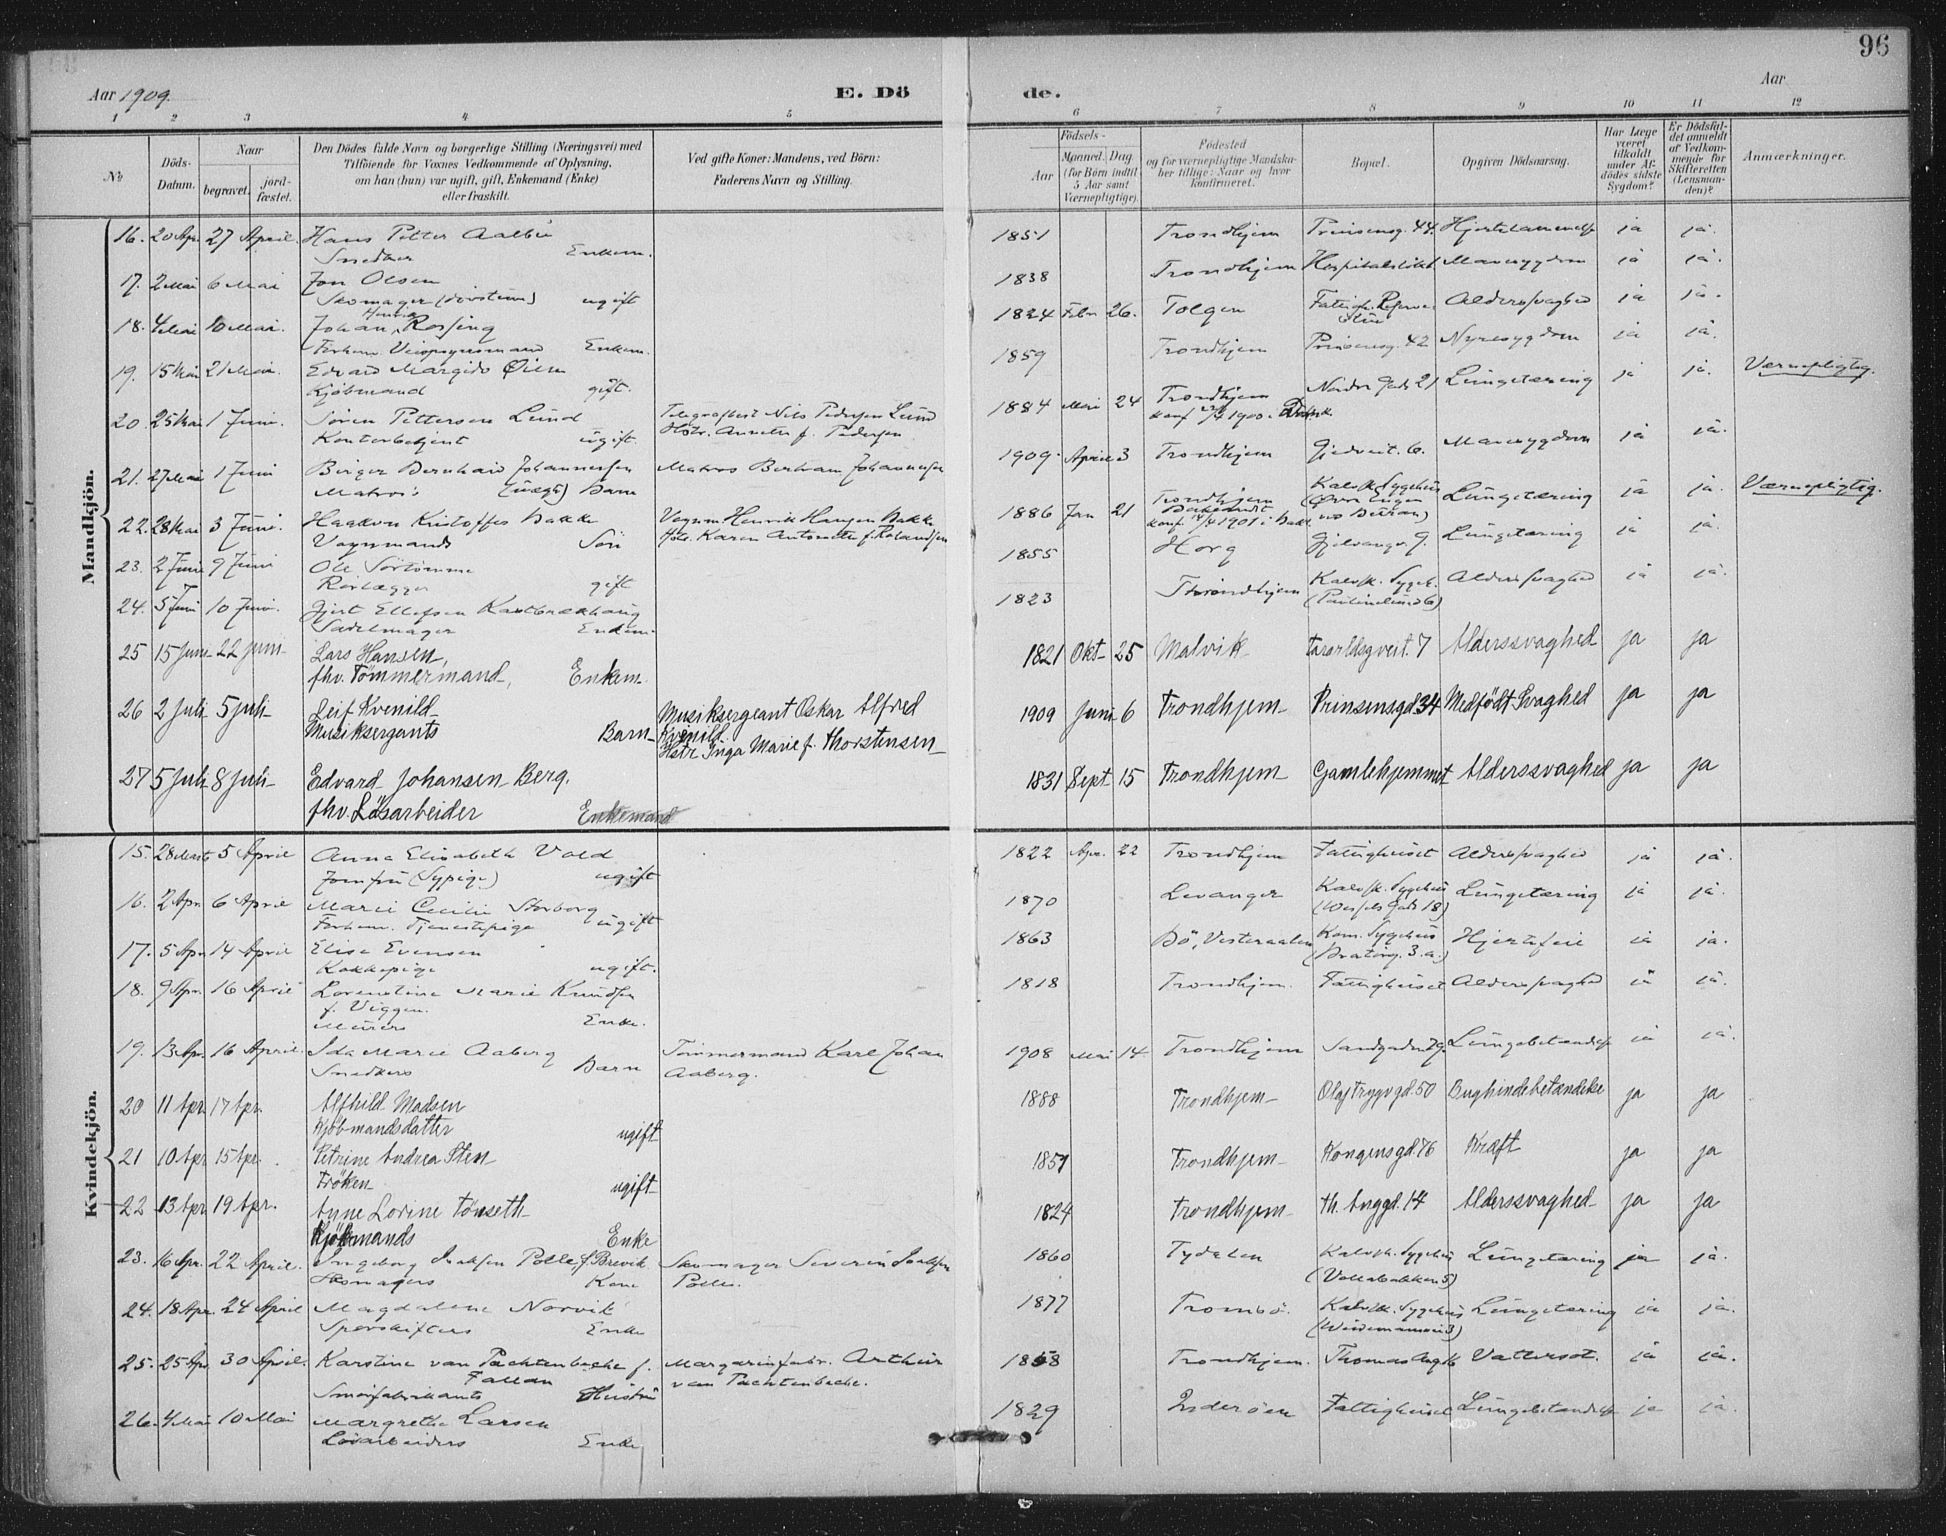 96
Aar 1909.
E. Dö de.
Aar
1 2 3 4 5 6 7 8 9 10 11 12
No
Döds-Datum.
Naar
begravet.
jord-fæstet.
Den Dödes fulde Navn og borgerlige Stilling (Næringsvei) med
Tilföiende for Voxnes Vedkommende af Oplysning,
om han (hun) var ugift, gift, Enkemand (Enke)
eller fraskilt.
Ved gifte Koner: Mandens, ved Börn:
Faderens Navn og Stilling.
Födsels-
Aar
Maaned. Dag
(for Börn indtil
5 Aar samt
Værnepligtige).
Födested
og for værnepligtige Mandska-
ber tillige: Naar og hvor
konfirmeret.
Bopæl.
Opgiven Dödsaarsag.
Har Læge
været
tilkaldt
under Af-
dödes sidste
Sygdom?
Er Dödsfal-
det anmeldt
af Vedkom-
mende for
Skifteretten
(Lensman-
den)?
Anmærkninger.
Mandkjön.
16. 20 Apr 27 April. Hans Petter Aalbu 1851 Trondhjem Prinsensg. 44. Hjertelammelse ja ja.
Snedker Enkem.
17. 2 Mai 6 Mai Jon Olsen 1838 Trondhjem Mavesygdom ja ja.
Skomager ugift
18. 4 Mai 10 Mai. Johan Henrik Rossing 1824 Febr 26. Tolgen Alderssvaghed ja ja.
Forhenv. Enkem.
19. 15 Mai 21 Mai. Edvard Margido Öien 1859 Trondhjem Prinsensg. 42 Nyresygdom ja ja.
Kjöbmand gift.
20. 25 Mai 1 Juni. Sören Pettersen Lund Telegrafbest Nils Pedersen Lund 1884 Mai 24 Trondhjem Nordre Gade 21 Lungetæring ja ja. Værnepligtig.
Kontorbetjent ugift. Hstr. Annette f. Pedersen
21. 27 Mai 1 Juni Birger Bernhard Johannessen Matros Bertram Johannessen 1909. April 3 Trondhjem Gjedveit. 6. Mavesygdom ja ja.
Matros (uægt) Barn
22. 28 Mai 3 Juni. Haakon Kristoffer Bakke Vognm. Henrik Hansen Bakke 1886 Jan 21 Trondhjem Kalvsk. Sygehus Lungetæring ja ja. Værnepligtig.
Vognmands Sön Hstr. Karen Antonette f. Rolandsen
konf. 14/4 1901 i Bakl.
23. 2 Juni 9 Juni Ole Sörtömme 1855 Horg Gjelvangv. 9. Lungetæring ja ja.
Rörlægger gift
24. 5 Juni 10 Juni. Gjert Ellefsen 1823 Trondhjem Kalvsk. Sygeh. Alderssvaghed ja ja.
Sadelmager Enkem. (Paulinelund 6)
25 15 Juni 22 Juni Lars Hansen, 1821 Okt 25 Malvik Taraldsgveit. 7 Alderssvaghed ja ja
fhv. Tömmermand, Enkem.
26 2 Juli 5 Juli Leif Kvenild Musiksergeant Oskar Alfred 1909 Juni 6 Trondhjem Prinsensgd 34 Medfödt Svaghed ja ja
Musiksergants Barn Kvenild
Hstr Inga Marie f. Thorstensen
27 5 Juli 8 Juli Edvard Johansen Berg. 1831 Sept 15 Trondhjem Gamlehjemmet Alderssvaghed ja ja
fhv. Lösarbeider Enkemand
Kvindekjön.
15. 28 Marts 5 April Anna Elisabeth Vold 1822 Apr. 22 Trondhjem Fattighuset Alderssvaghed ja ja.
Jomfru (Sypige) ugift
16. 2 Apr. 6 April Marie Cecilie Storborg 1870 Levanger Kalvsk. Sygehus Lungetæring ja ja.
Forhenv. Tjenestepige ugift (Wessels Gade 18)
17. 5 Apr 14 April Elise Evensen 1863 Bö, Vesteraalen Kom. Sygehus Hjertefeil ja ja.
Kokkepige ugift.
18. 9 Apr. 16 April Lorentine Marie Knudsen 1818 Trondhjem. Fattighuset Alderssvaghed ja ja.
f. Viggen.
Murers Enke.
19. 13 Apr. 16 April. Ida Marie Aaberg Tömmermand Karl Johan 1908 Mai 14 Trondhjem Lungebetændelse ja ja.
Snedkers Barn Aaberg.
20 11 Apr 17 Apr. Alfhild Madsen 1888 Trondhjem Olaf Trygv gd. 50 Bughindebetændelse ja ja
Kjöbmandsdatter ugift
21 10 Apr 15 Apr. Petrine Andrea Sten 1851 Trondhjem Kongensgd. 76 Kræft ja ja
Fröken ugift
22 13 Apr 19 Apr. Anne Lovine Tönseth 1824 Trondhjem Th. Anggd. 14 Alderssvaghed ja ja
Kjöbmands Enke
23. 16 Apr. 22 April. Ingeborg Isaksen Polle f. Brevik Skomager Severin Isaksen 1860 Tydalen Kalvsk. Sygehus Lungetæring ja ja.
Skomagers Kone Polle. (Vollabakken 5)
24. 18 Apr. 24 April Magdalene Norvik 1877 Tromsö. Kalvsk. Sygehus Lungetæring ja ja.
Sporskifters Enke
25. 25 Apr 30 April. Karstine van Pachtenbeke f. Margarinfabr. Arthur 1858 Trondhjem. Vattersot. ja ja.
Smörfabrikants Hustru van Pachtenbeke.
26. 4 Mai 10 Mai Margrethe Larsen 1829 Inderöen Fattighuset Lungebetændelse ja ja.
Lösarbeiders Enke